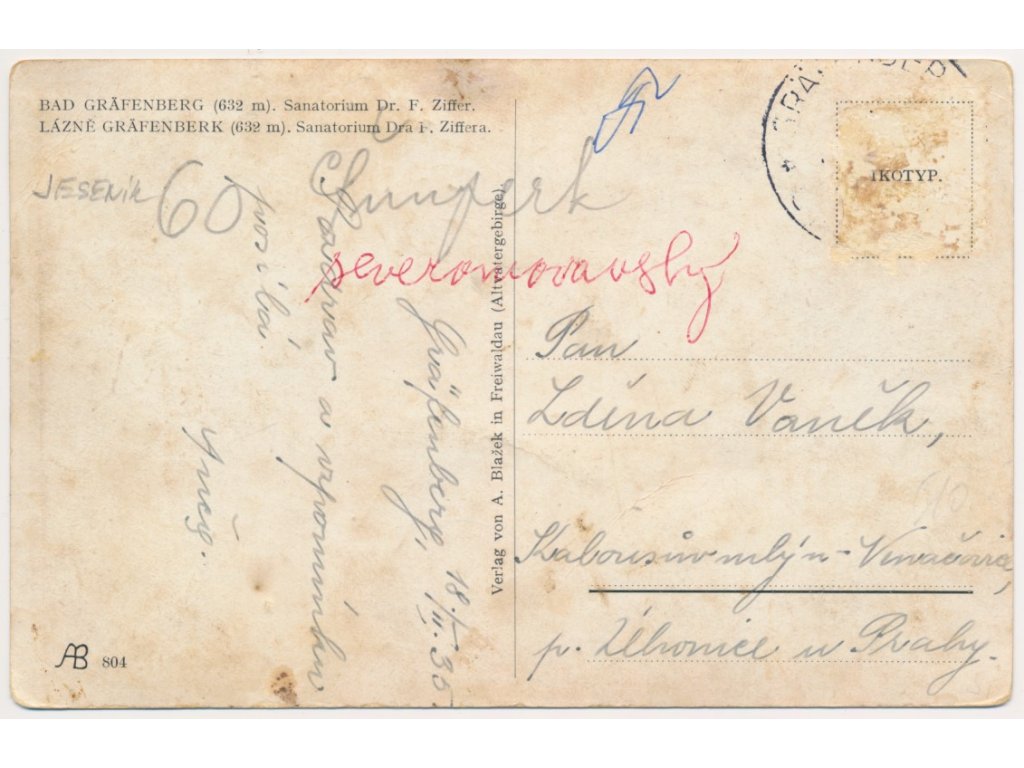 BAD GRÄFENBERG (632 m). Sanatorium Dr. F. Ziffer.
LÁZNĚ GRÄFENBERK (632 m). Sanatorium Dra F. Ziffera.
JESENÍK
60
Šumperk
severomoravský
Gräfenberg, 18./II. 35
Pozdrav a vzpomínku
posílá
Verlag von A. Blažek in Freiwaldau (Altvatergebirge)
IKOTYP.
Pan
Zdéna Vaněk,
mlýn -
p. u Prahy.
AB 804